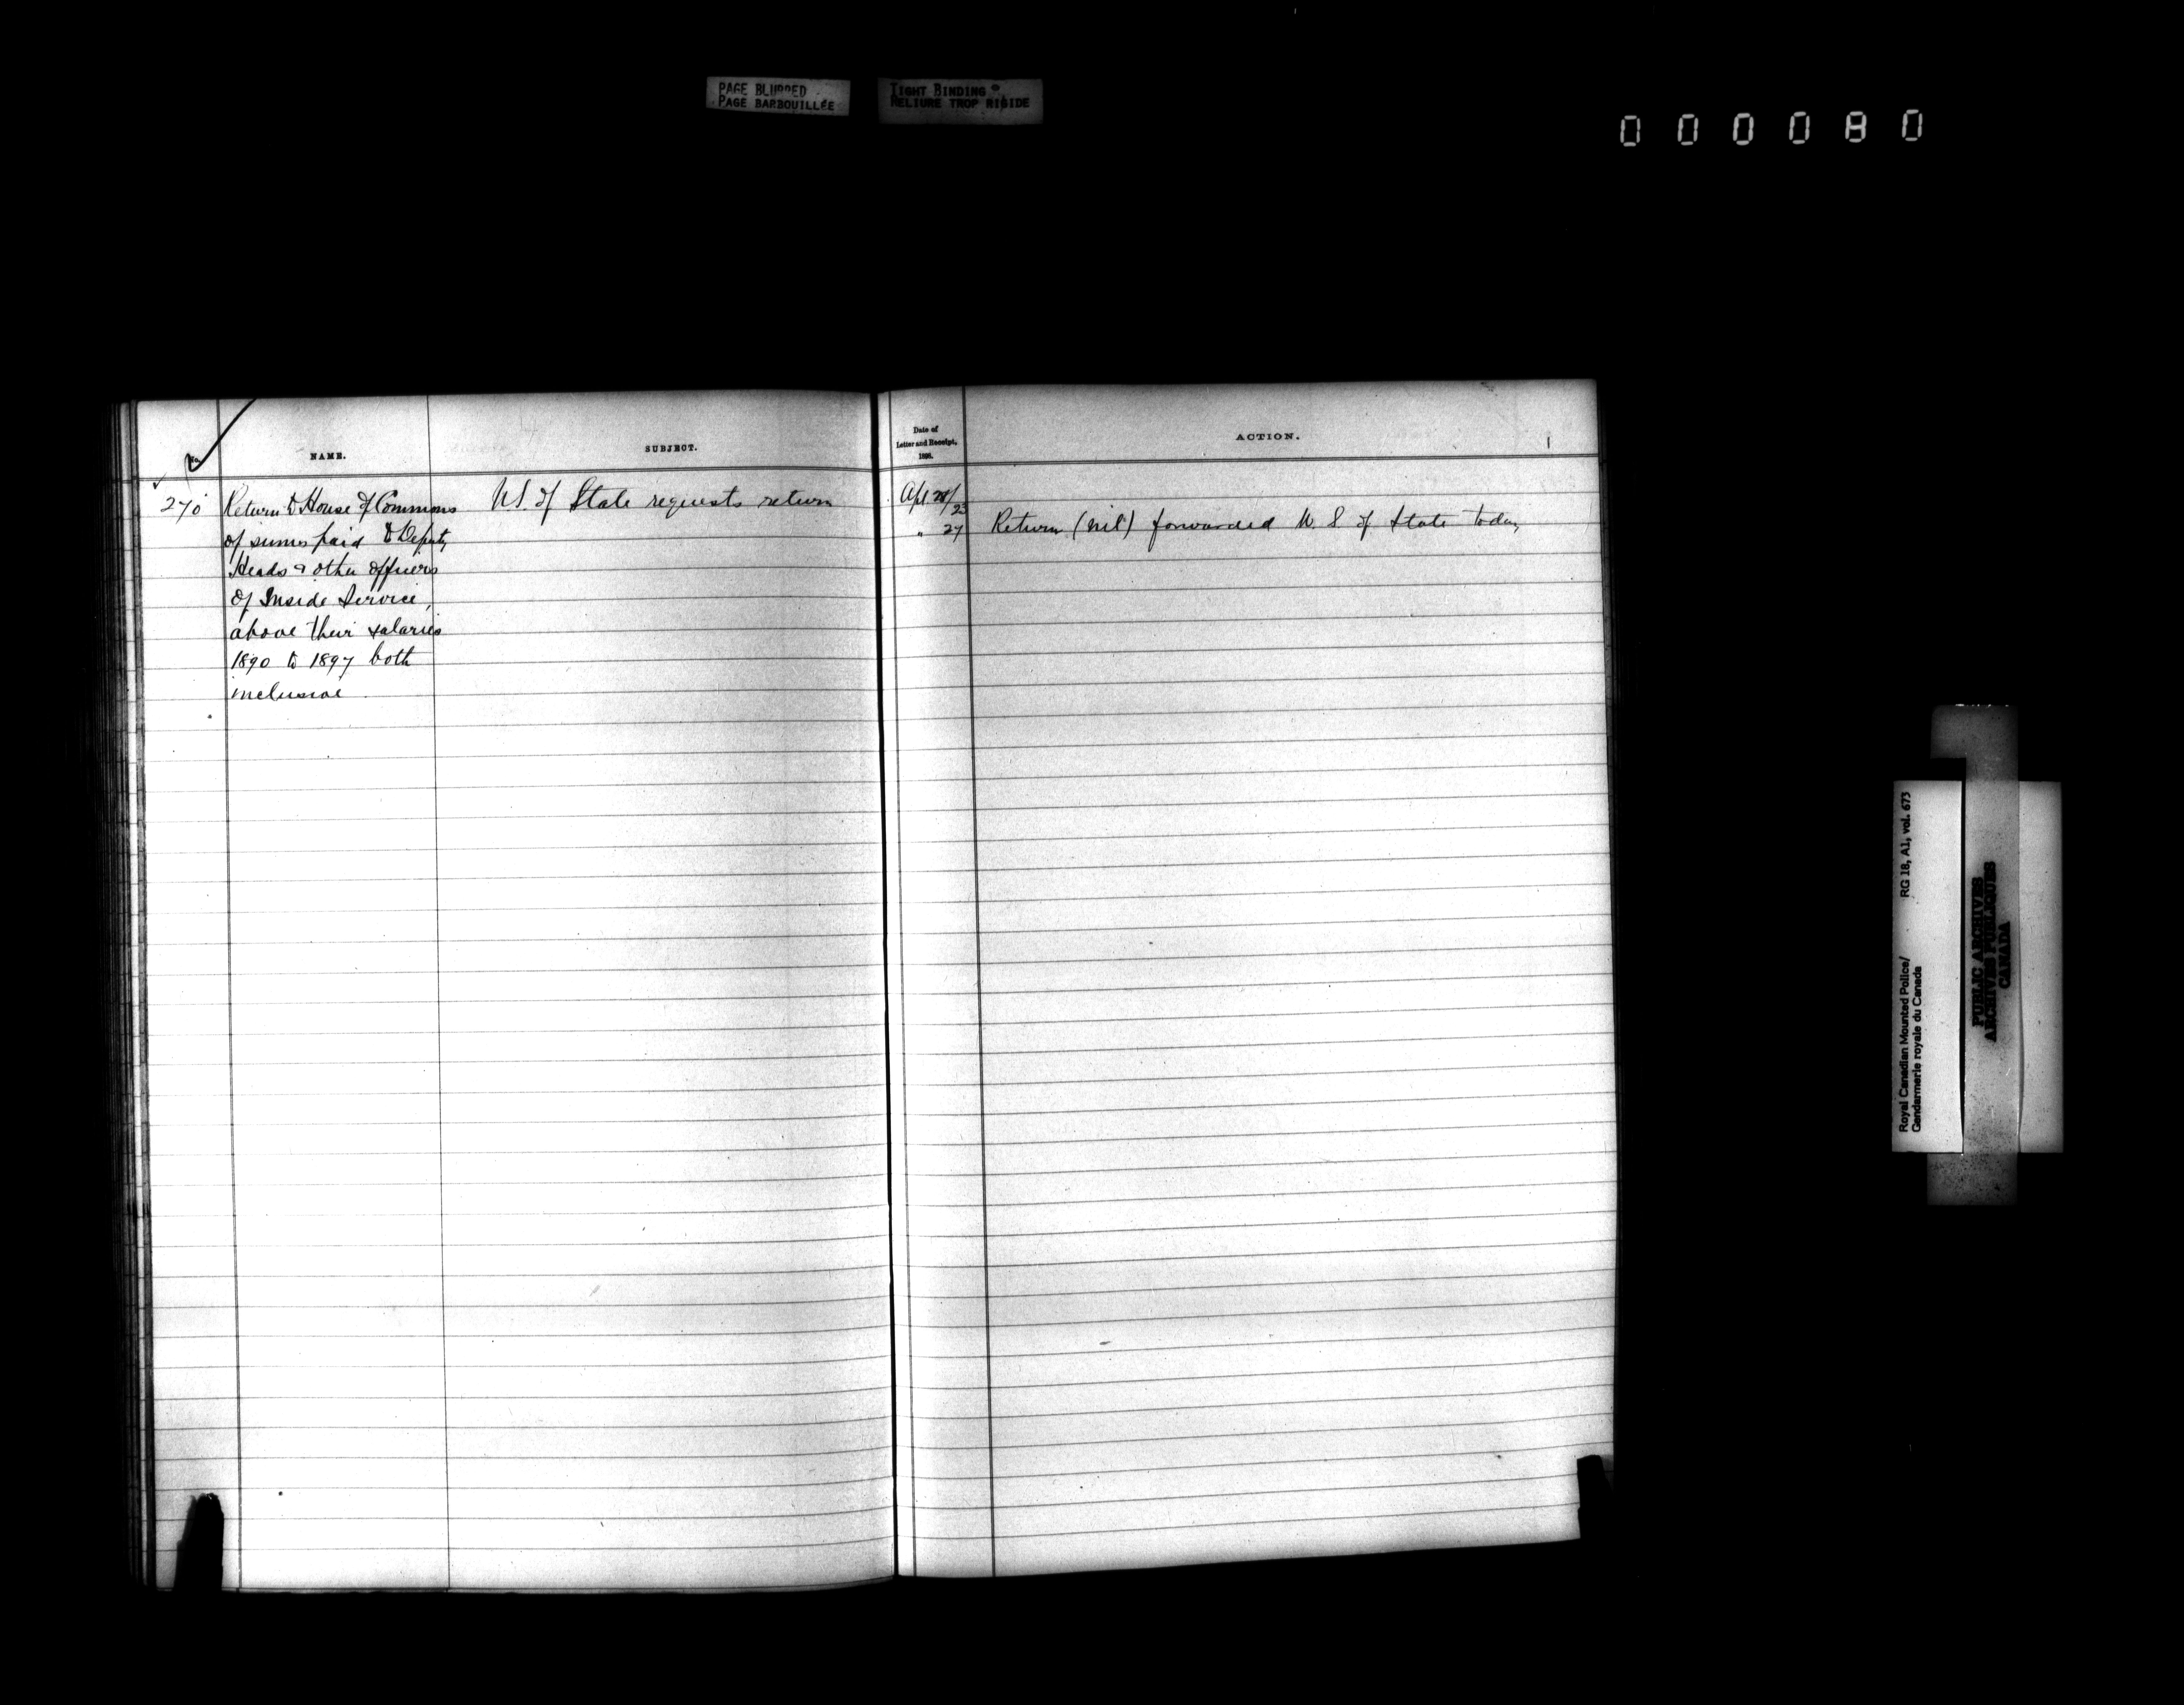 PAGE BLURRED
PAGE BARBOUILLÉE
TIGHT BINDING
RELIURE TROP RIGIDE
000080
No.
NAME.
SUBJECT.
Date of
Letter and Receipt,
1898.
ACTION.
270 Return to House of Commons U.S. of State requests return Apl. 21/23
of sums paid to Deputy " 27 Return (nil) forwarded U. S. of State today
Heads & other officers
of Inside Service,
above their salaries
1890 to 1897 both
inclusive.
Royal Canadian Mounted Police/ RG 18, A1, vol. 673
Gendarmerie royale du Canada
PUBLIC ARCHIVES
ARCHIVES PUBLIQUES
CANADA